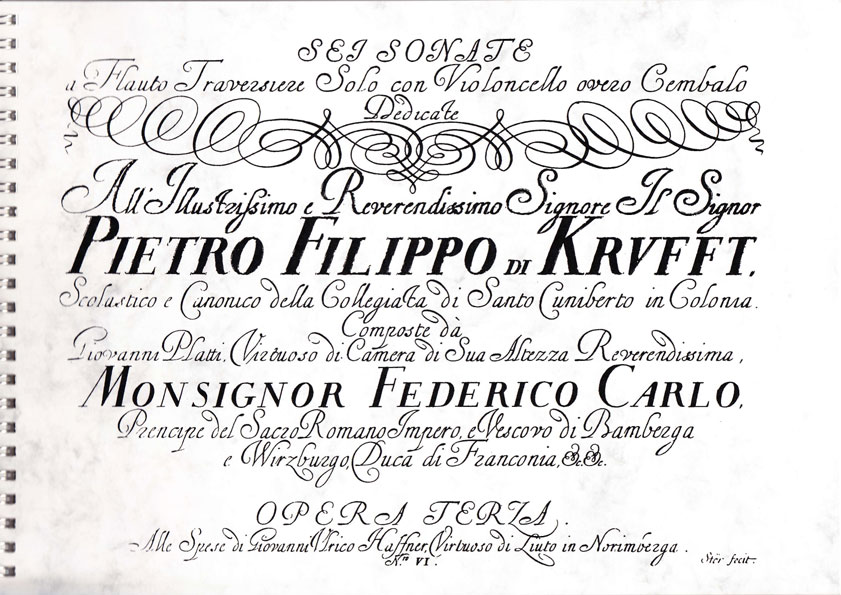 SEI SONATE
a Flauto Traversiere Solo con Violoncello overo Cembalo
Dedicate
All' Illustrissimo e Reverendissimo Signore Il Signor
PIETRO FILIPPO DI KRVFFT.
Scolastico e Canonico della Collegiata di Santo Cuniberto in Colonia.
Composte dà
Giovanni Platti, Virtuoso di Camera di Sua Altezza Reverendissima,
MONSIGNOR FEDERICO CARLO,
Prencipe del Sacro Romano Impero, e Vescovo di Bamberga
e Wirzburgo, Duca di Franconia, &c. &c.
OPERA TERZA.
Alle Spese di Giovanni Ulrico Haffner, Virtuoso di Liuto in Norimberga.
N.ro VI.
Stör fecit.